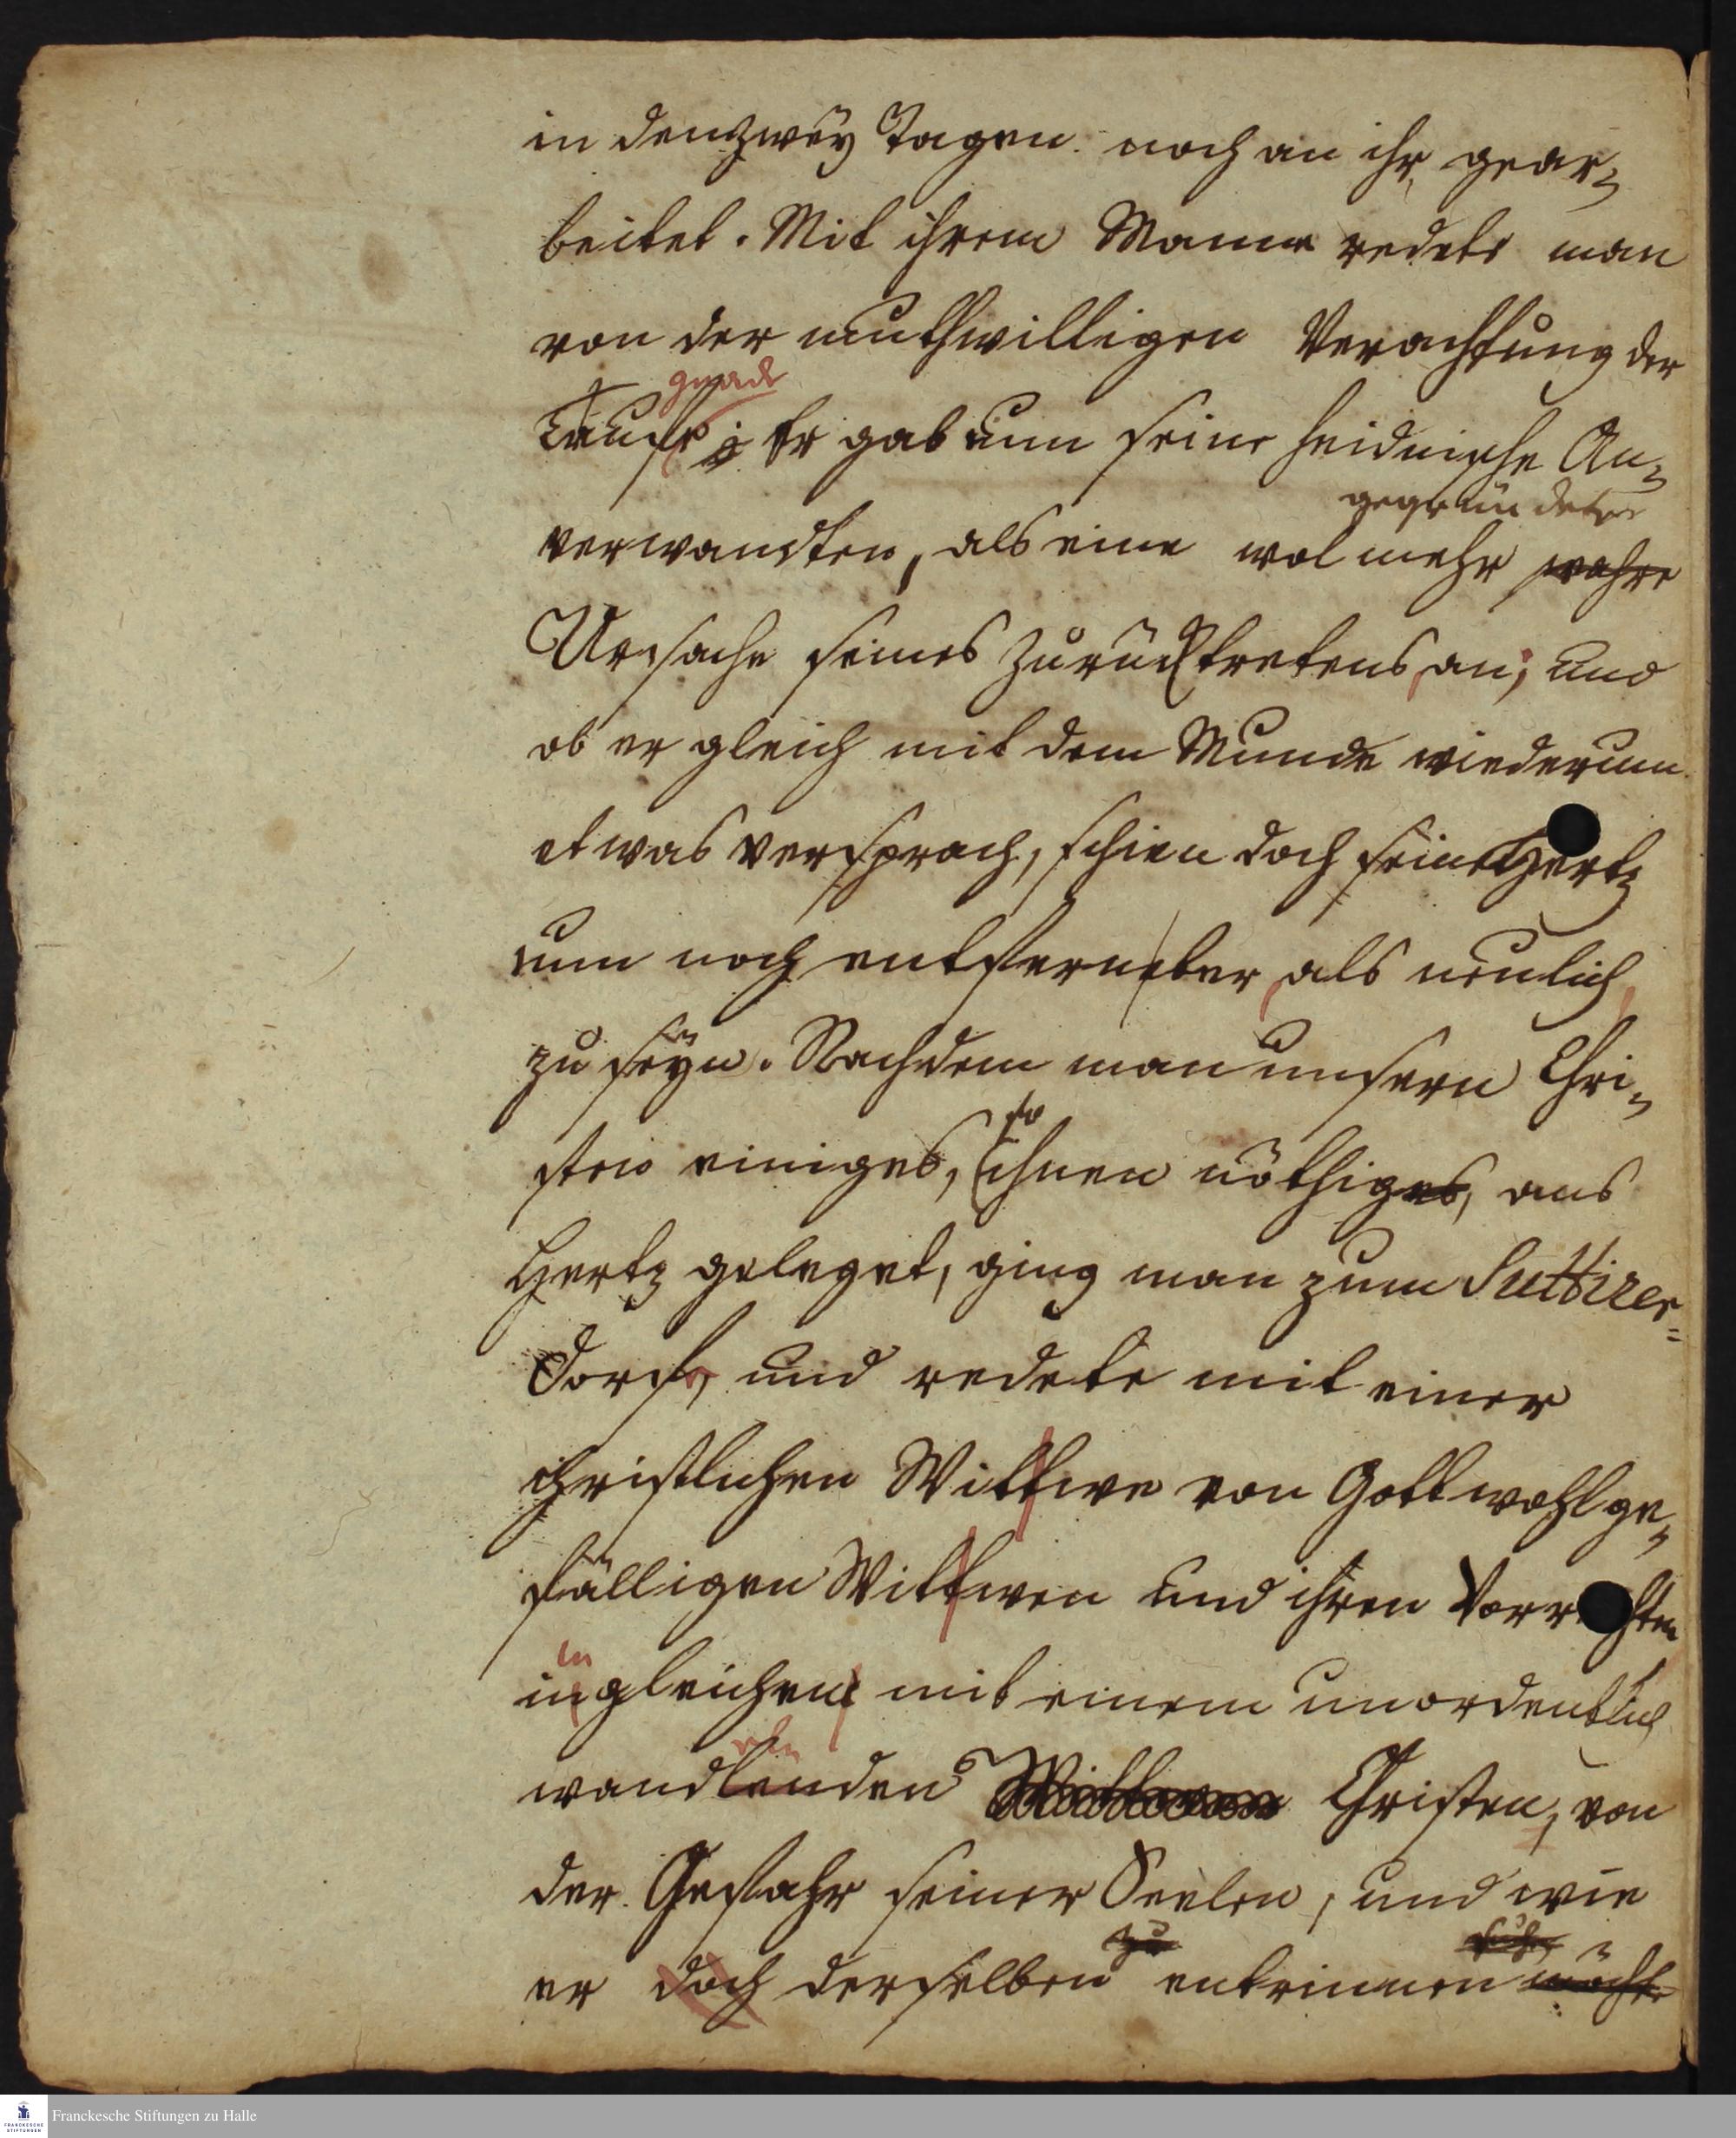 in den zwey Tagen noch an ihr gear-
beitet. Mit ihrem Manne redete man
von der muthwilligen Verachtung der
gnade
Tauffe; Er gab nun seine heidnische An-
gegründete
verwandten, als eine wol mehr wahre
Ursache seines Zurücktretens an; und
ob er gleich mit dem Munde wiederum
etwas versprach, schien doch sein Hertz
nun noch entfernter als neulich
zu seyn. Nachdem man unsern Chri-
so
sten einiges, ihnen nöthiges, ans
Hertz geleget, ging man zum Suttirer-
Dorf, und redete mit einer
christlichen Wittwe von Gott wohlge-
fälligen Wittwen und ihren Vorrechten
in
ingleichen mit einem unordentlich
eln
wandlenden Wittwen Christen, von
der Gefahr seiner Seelen, und wie
zu
er doch derselben entrinnen möchte